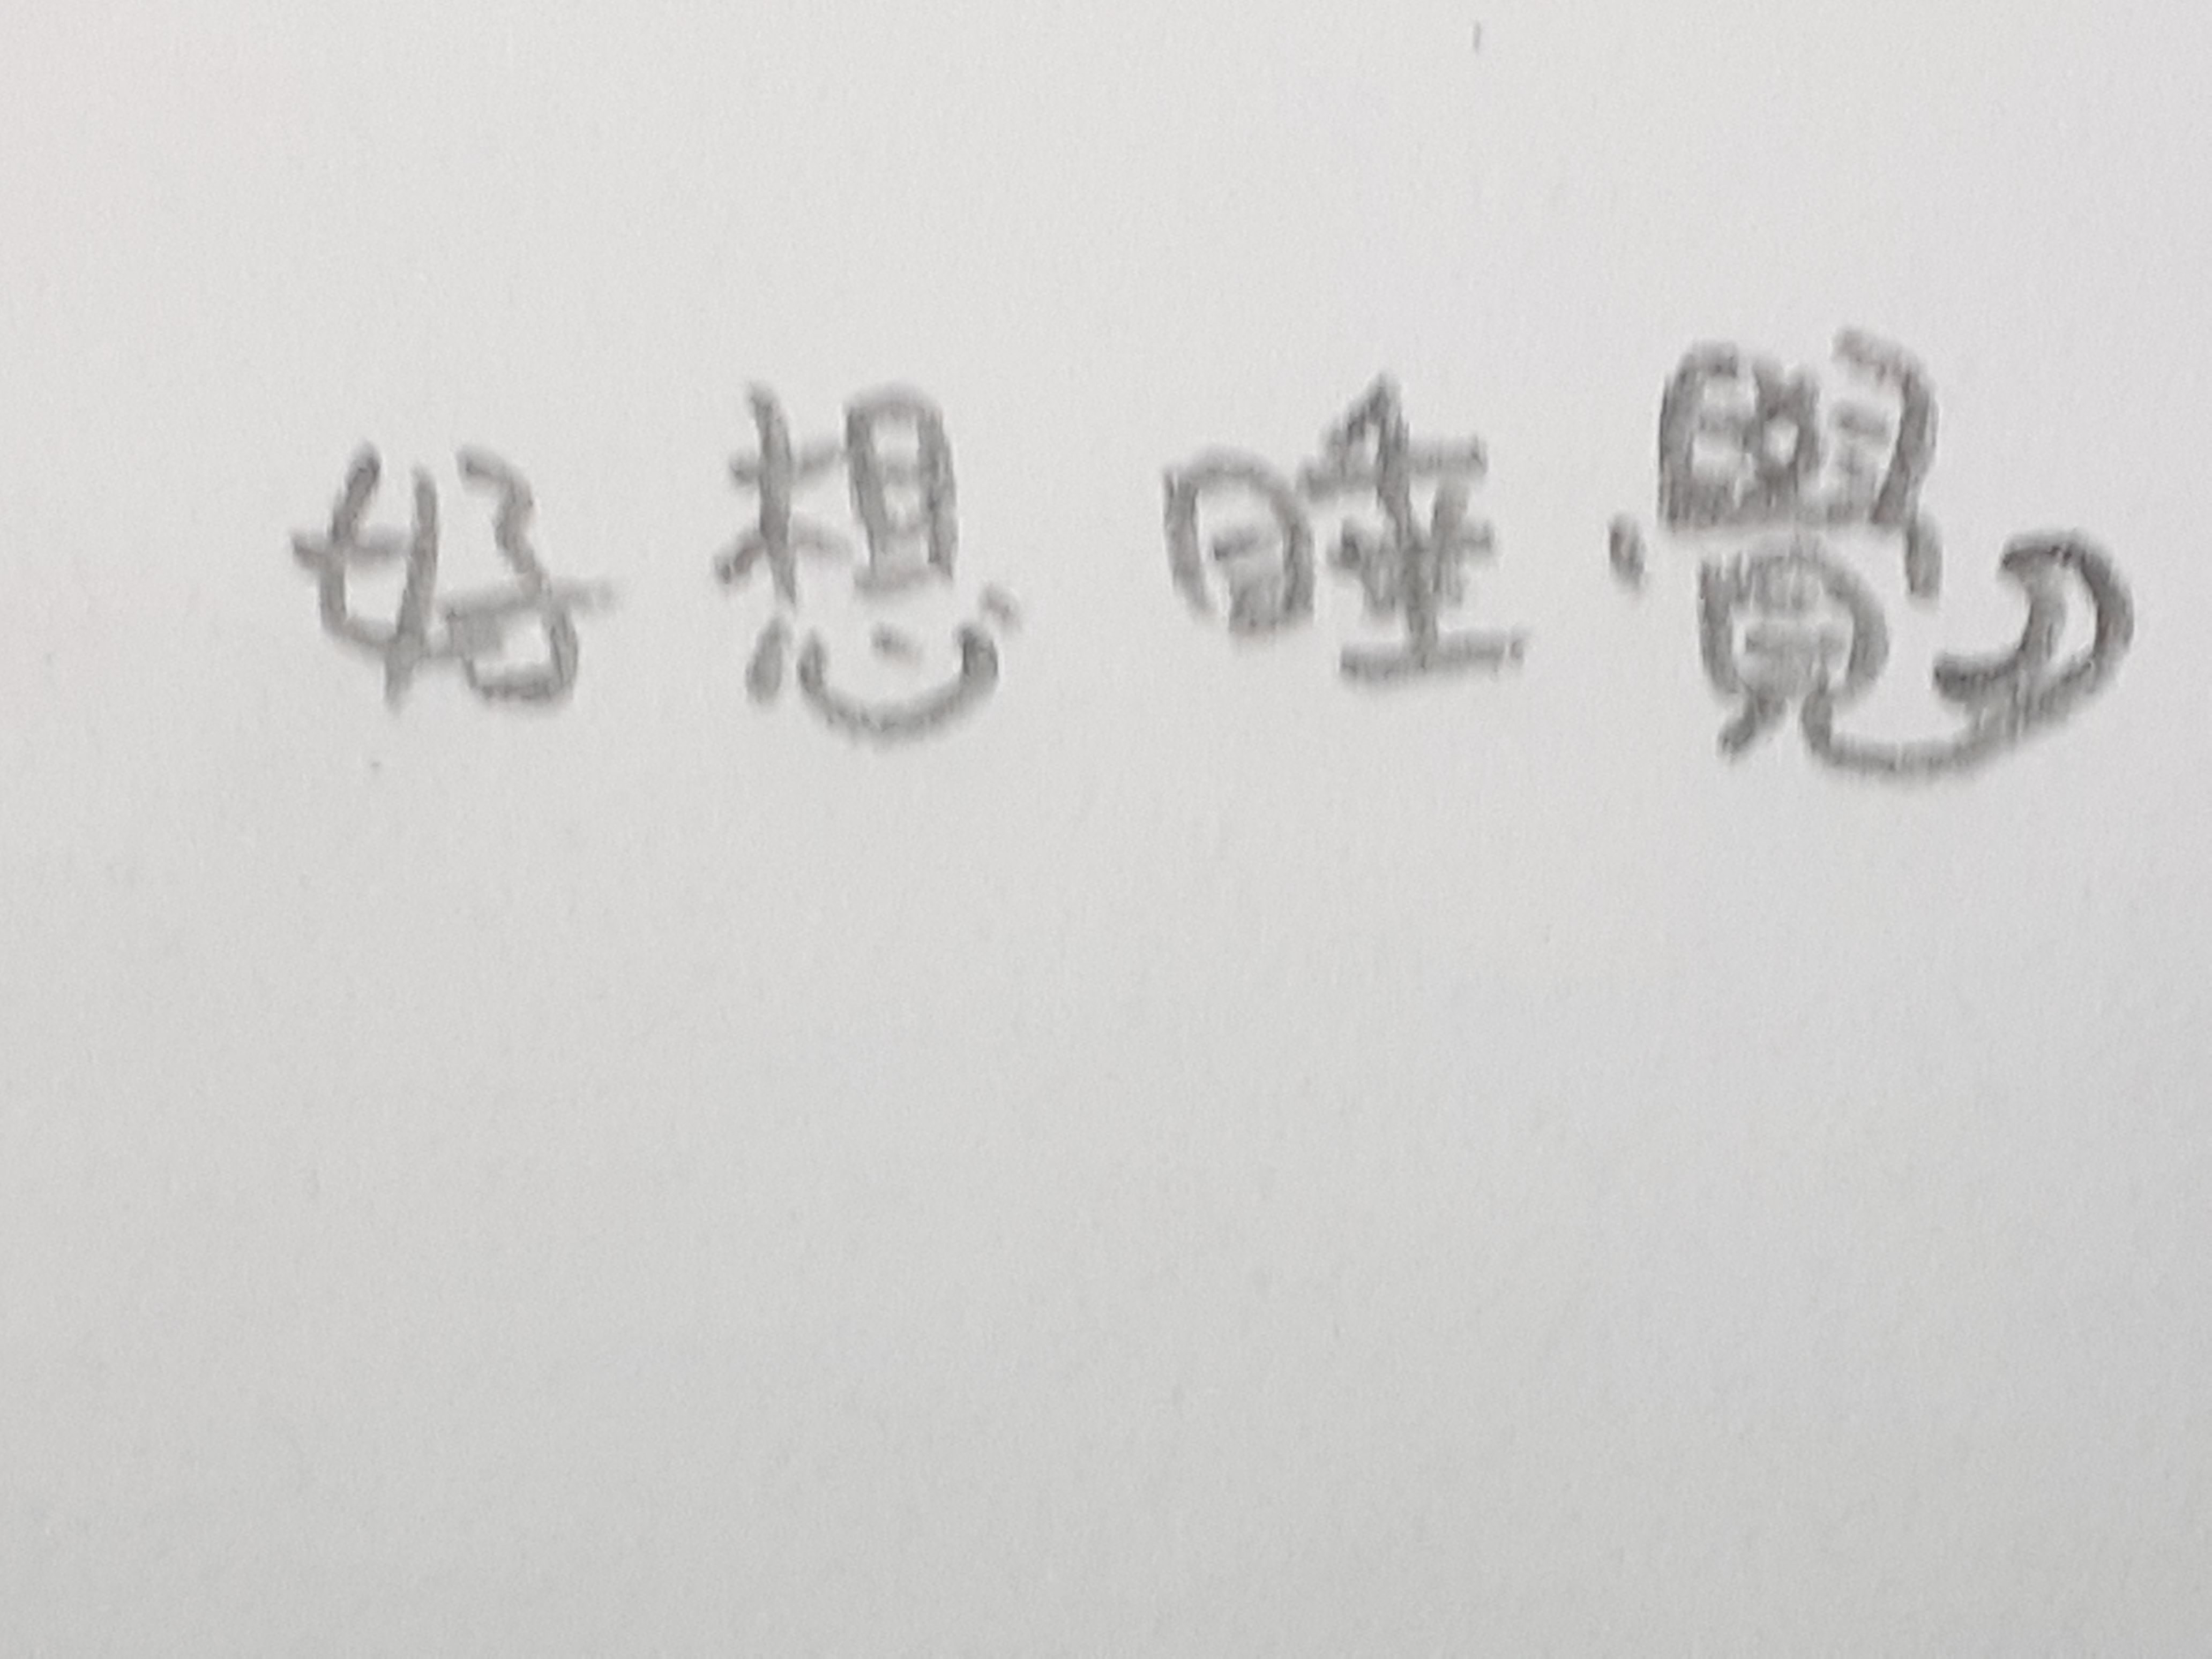 好想睡覺